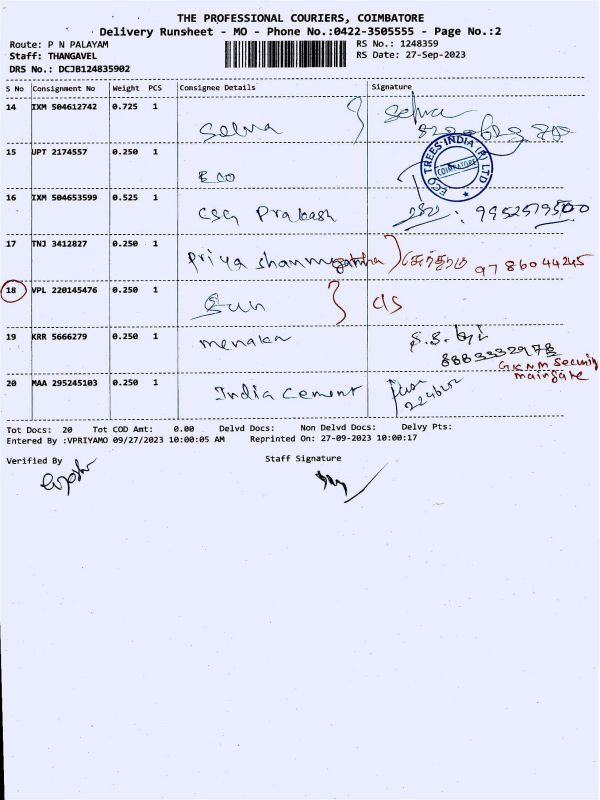 THE PROFESSIONAL COURIERS, COIMBATORE
Delivery Runsheet - MO - Phone No.:0422-3505555 - Page No.:2
Route: P N PALAYAM RS No.: 1248359
Staff: THANGAVEL RS Date: 27-Sep-2023
DRS No.: DCJB124835902
S No Consignment No Weight PCS Consignee Details Signature
14 IXM 504612742 0.725 1 Selva Selva
15 UPT 2174557 0.250 1 Eco
ECO TREES INDIA (P) LTD
COIMBATORE
16 IXM 504653599 0.525 1 CSG Prakash : 9952579500
17 TNJ 3412827 0.250 1 Priya Shanmugantha 9786044245
18 VPL 220145476 0.250 1 Sun CIS
19 KRR 5666279 0.250 1 Menaka
8883332978
GKNM Security
maingate
20 MAA 295245103 0.250 1 India Cement
Tot Docs: 20 Tot COD Amt: 0.00 Delvd Docs: Non Delvd Docs: Delvy Pts:
Entered By :VPRIYAMO 09/27/2023 10:00:05 AM Reprinted On: 27-09-2023 10:00:17
Verified By Staff Signature